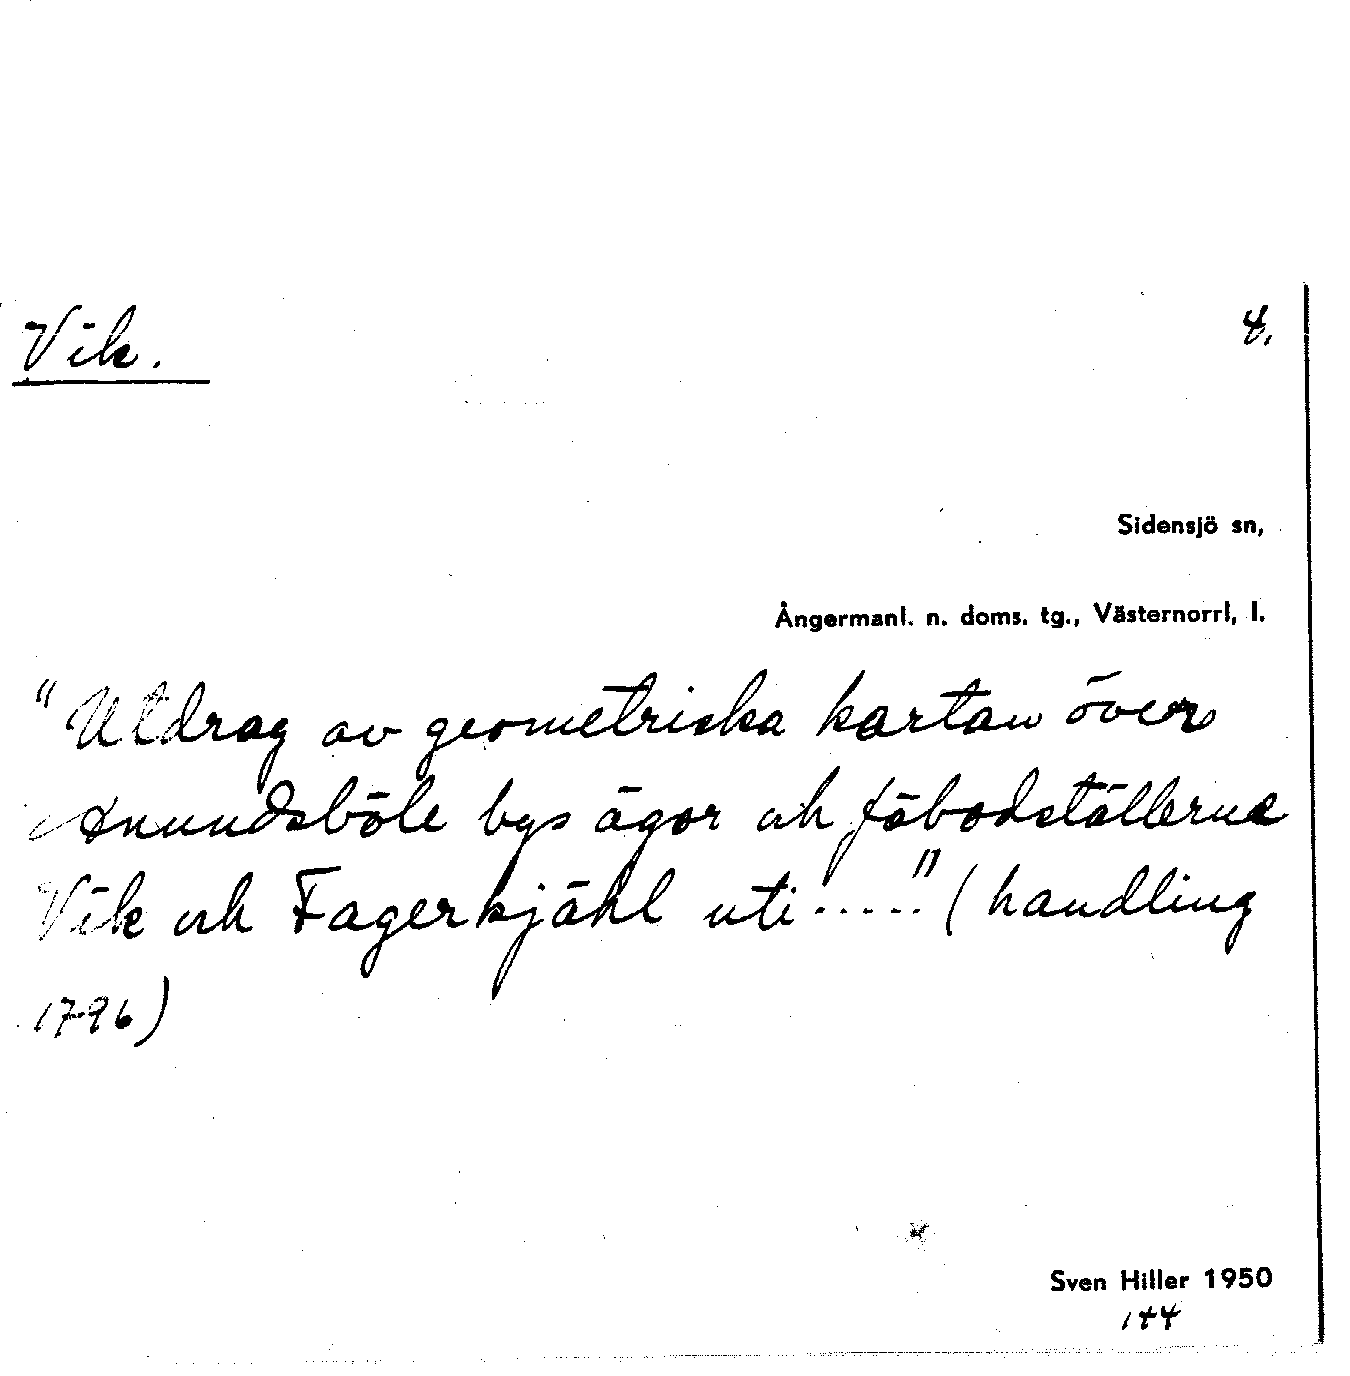 Vik.
4.
Sidensjö sn,
Ångermanl. n. doms. tg., Västernorrl, l.
"Utdrag av geometriska kartan över
Anundsböle bys ägor och fäbodställerne
Vik och Fagerkjähl uti....." (handling
1796)
Sven Hiller 1950
144